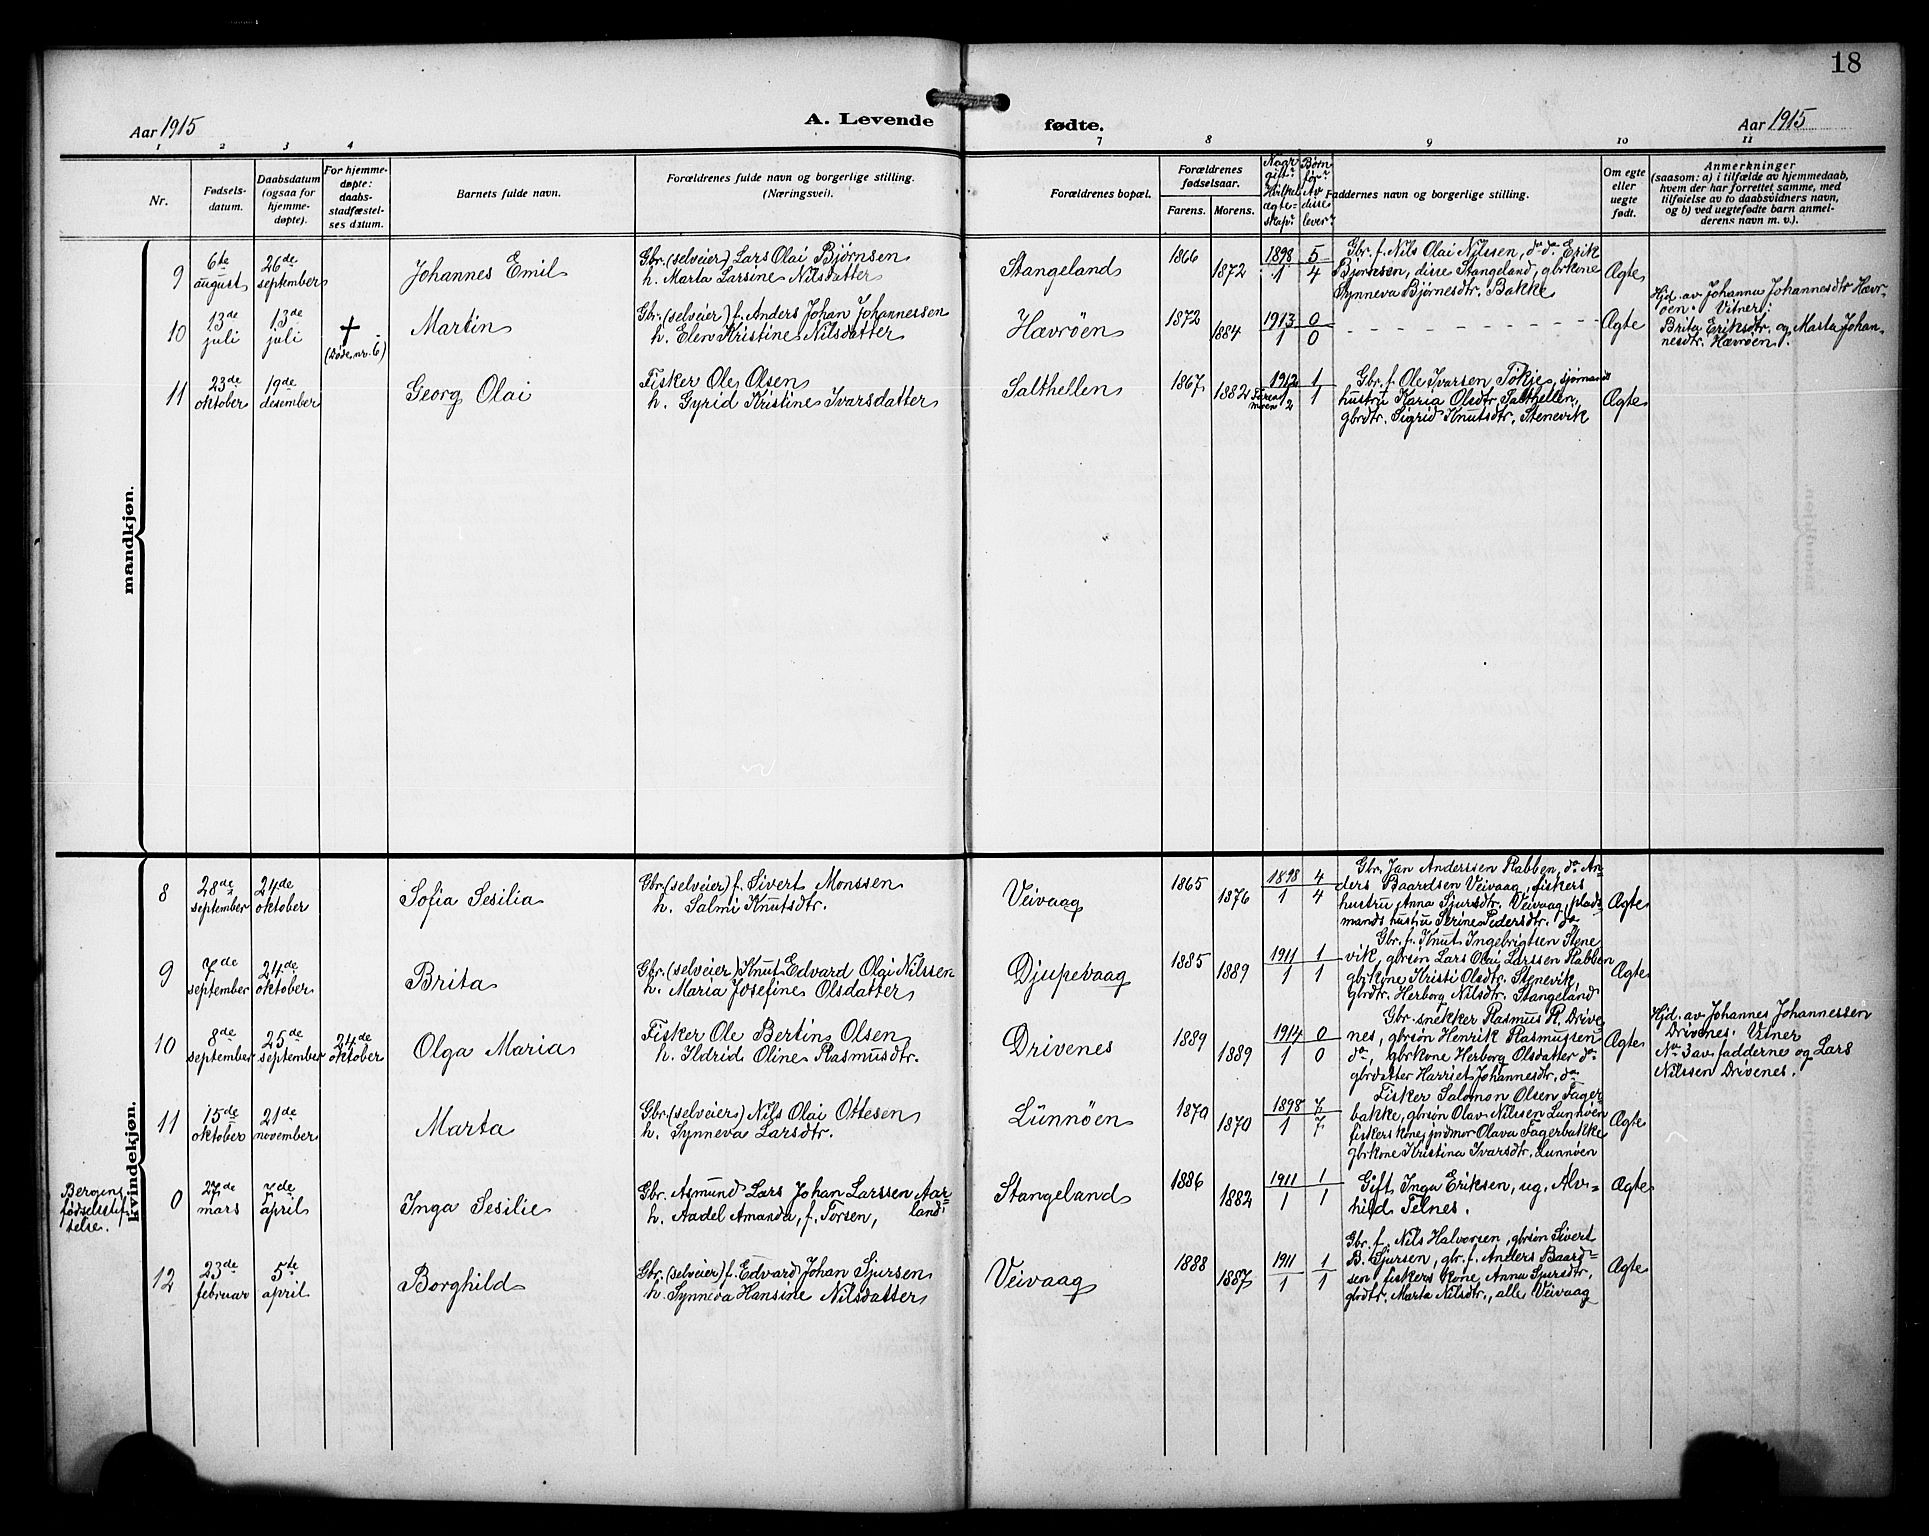 18
Aar 1915
A. Levende
fødte.
Aar 1915
1 2 3 4 7 8 9 10 11
Nr.
Fødsels-
datum.
Daabsdatum
(ogsaa for
hjemme-
døpte).
For hjemme-
døpte:
daabs-
stadfæstel-
ses datum.
Barnets fulde navn.
Forældrenes fulde navn og borgerlige stilling.
(Næringsvei).
Forældrenes bopæl.
Forældrenes
fødselsaar.
Farens. Morens.
Naar
gift?
Hvilket
ægte-
skap?
Børn
før?
Av
disse
lever?
Faddernes navn og borgerlige stilling.
Om egte
eller
uegte
født.
Anmerkninger
(saasom: a) i tilfælde av hjemmedaab,
hvem der har forrettet samme, med
tilføielse av to daabsvidners navn,
og b) ved uegtefødte barn anmel-
derens navn m. v.).
mandkjøn.
9
6te
august
26de
september
Johannes Emil
Gbr. (selveier) Lars Olai Bjørnsen
h. Marta Larsine Nilsdatter
Stangeland
1866
1872
1898 5
1 4
Gbr. f. Nils Olai Nilssen, do do Erik
Bjørnesen, disse Stangeland, gbrkone
Synneva Bjørnesdtr. Bakke
Ægte
10
13de
juli
13de
juli
✝
(Døde, nr. 6)
Martin
Gbr. (selveier) f. Anders Johan Johannessen
h. Elen Kristine Nilsdatter
Hævrøen
1872
1884
1913 0
1 0
- - - - - - - - - -
Ægte
Hjd. av Johanna Johannesdtr Hævr-
øen. Vitner:
Brita Eriksdtr. og Marta Johan-
nesdtr. Hævrøen.
11
23de
oktober
19de
desember
Georg Olai
Fisker Ole Olsen
h. Gyrid Kristine Ivarsdatter
Salthellen
1867
1882
1912 1
1
2 1
Gbr. f. Ole Ivarsen Tøkje, sjømands
hustru Karia Olsdtr. Salthellen,
gbrdtr. Sigrid Knutsdtr. Stenevik
Ægte
kvindekjøn.
8
28de
september
24de
oktober
Sofia Sesilia
Gbr. (selveier) f. Sivert Monssen
h. Salmi Knutsdtr.
Veivaag
1865
1876
1898 4
1 4
Gbr. Jan Anderssen Rabben, do An-
ders Baardsen Veivaag, fiskers
hustru Anna Sjursdtr. Veivaag, plads-
mands hustru Serine Pedersdtr. do
Ægte
9
7de
september
24de
oktober
Brita
Gbr. (selveier) Knut Edvard Olai Nilssen
h. Maria Josefine Olsdatter
Djupevaag
1885
1889
1911 1
1 1
Gbr. f. Knut Ingebrigtsen Stene
vik, gbrsøn Lars Olai Larssen Rabben
gbrkone Kristi Olsdtr. Stenevik,
gbrdtr. Herborg Nilsdtr. Stangeland
Ægte
10
8de
september
25de
september
24de
oktober
Olga Maria
Fisker Ole Bertin Olsen
h. Ildrid Oline Rasmusdtr.
Drivenes
1889
1889
1914 0
1 0
Gbr. snekker Rasmus R. Drive
nes, gbrsøn Henrik Rasmussen
do, gbrkone Herborg Olsdatter do
gbrdatter Harriet Johannesdtr. do
Ægte
Hjd. av Johannes Johannessen
Drivenes. Vitner
No 3 av fadderne og Lars
Nilssen Drivenes.
11
15de
oktober
21de
november
Marta
Gbr. (selveier) Nils Olai Ottesen
h. Synneva Larsdtr.
Lunnøen
1870
1870
1898 7
1 7
Fisker Salomon Olsen Fager-
bakke, gbrsøn Olav Nilsen Lunnøen
fiskers kone, jordmor Olava Fagerbakke
gbrkone Kristina Ivarsdtr. Lunnøen
Ægte
Bergens
fødselsstif
telse.
0
27de
mars
7de
april
Inga Sesilie
Gbr. Asmund Lars Johan Larssen Aar-
land
h. Aadel Amanda, f. Torsen,
Stangeland
1886
1882
1911 1
1 1
Gift Inga Eriksen, ug. Alv-
hild Telnes.
Ægte
12
23de
februar
5te
april
Borghild
Gbr. (selveier) f. Edvard Johan Sjursen
h. Synneva Hansine Nilsdatter
Veivaag
1888
1887
1911 1
1 1
Gbr. f. Nils Halvorsen, gbrsøn Sivert
B. Sjursen, gbr. f. Anders Baard-
sen, fiskers kone, Anna Sjursdtr,
gbrdtr. Marta Nilsdtr., alle Veivaag
Ægte